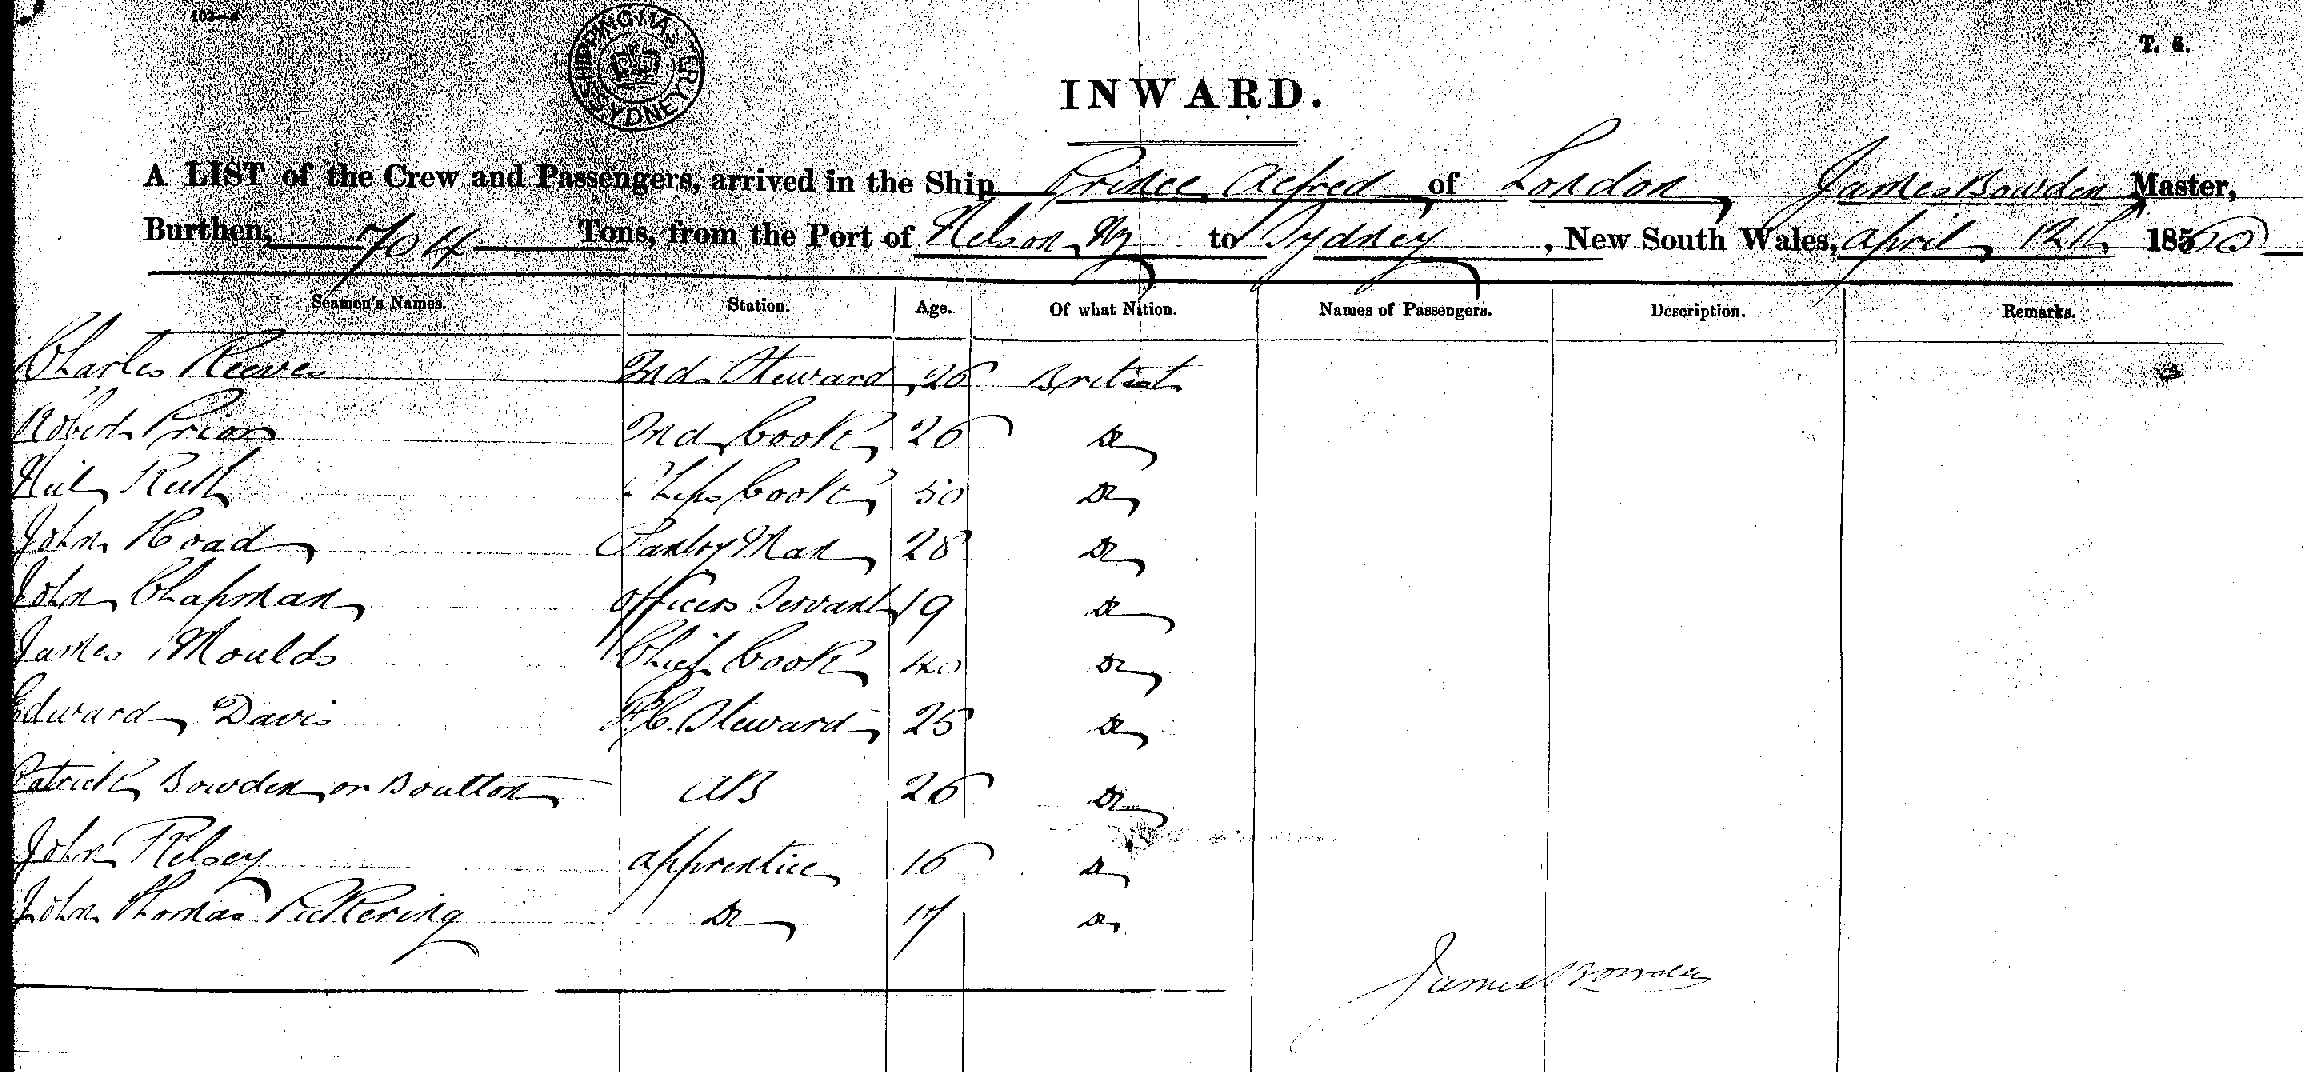 SHIPPING MASTER SYDNEY
T. 6.
INWARD.
A LIST of the Crew and Passengers, arrived in the Ship Prince Alfred of London James Bowden Master,
Burthen, 704 Tons, from the Port of Nelson, NZ to Sydney, New South Wales, April 12th 1860
Seamen's Names. Station. Age. Of what Nation. Names of Passengers. Description. Remarks.
Charles Reeves 2nd Steward 26 British
Robert Prior 2nd Cook 26 Do
Neil Ruth Ships Cook 50 Do
John Hoad Pantry Man 28 Do
John Chapman Officers Servant 19 Do
James Moulds Chief Cook 40 Do
Edward Davis F.C. Steward 25 Do
Patrick Bowden or Boulton AB 26 Do
John Kelsey apprentice 16 Do
John Thomas Pickering Do 17 Do
James Bowden